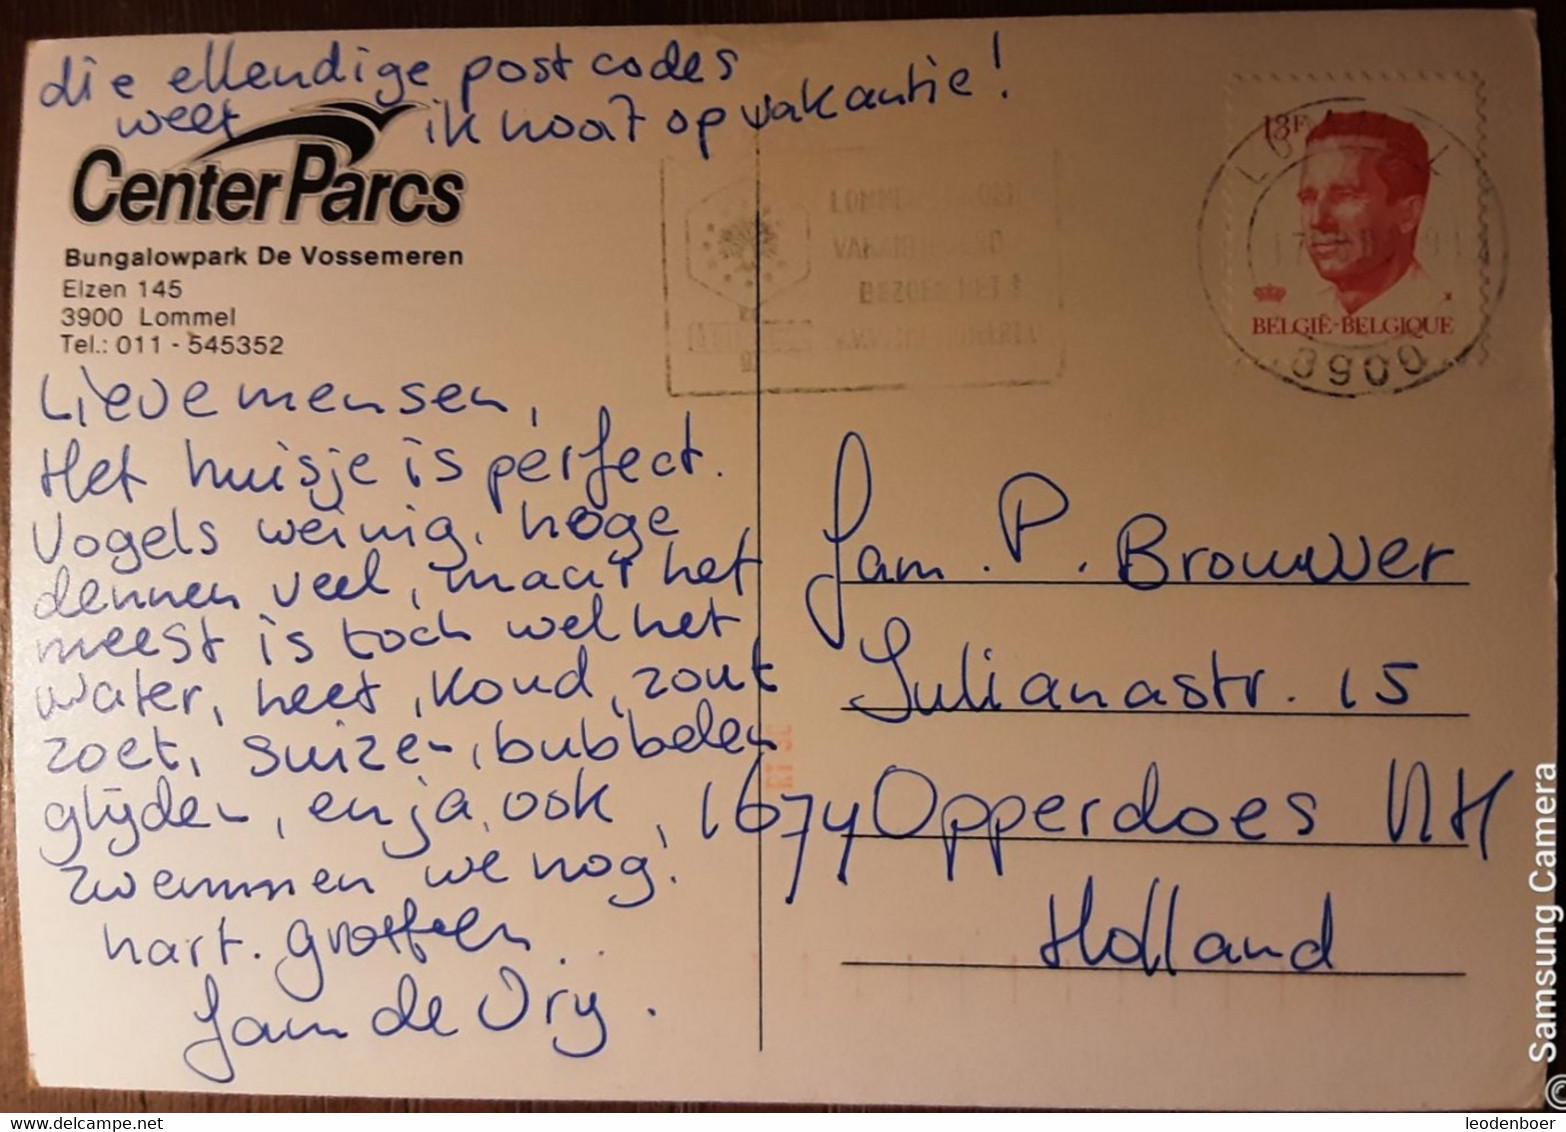 die ellendige postcodes
weet ik nooit op vakantie!
Center Parcs
Bungalowpark De Vossemeren
Elzen 145
3900 Lommel
Tel.: 011 - 545352
Lieve mensen,
Het huisje is perfect.
Vogels weinig, hoge
dennen veel, maar het
meest is toch wel het
water, heet, koud, zout
zoet, suizen, bubbelen
glijden, en ja, ook,
zwemmen we nog!
hart. groeten..
Fam de Vry.
13F
BELGIË-BELGIQUE
3900
Fam. P. Brouwer
Julianastr. 15
1674 Opperdoes NH
Holland
© Samsung Camera
delcampe.net
leodenboer